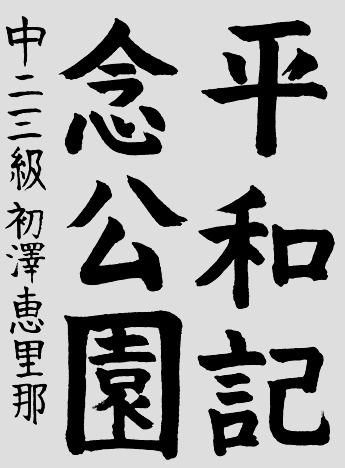 平和記
念公園
中二三級初澤恵里那